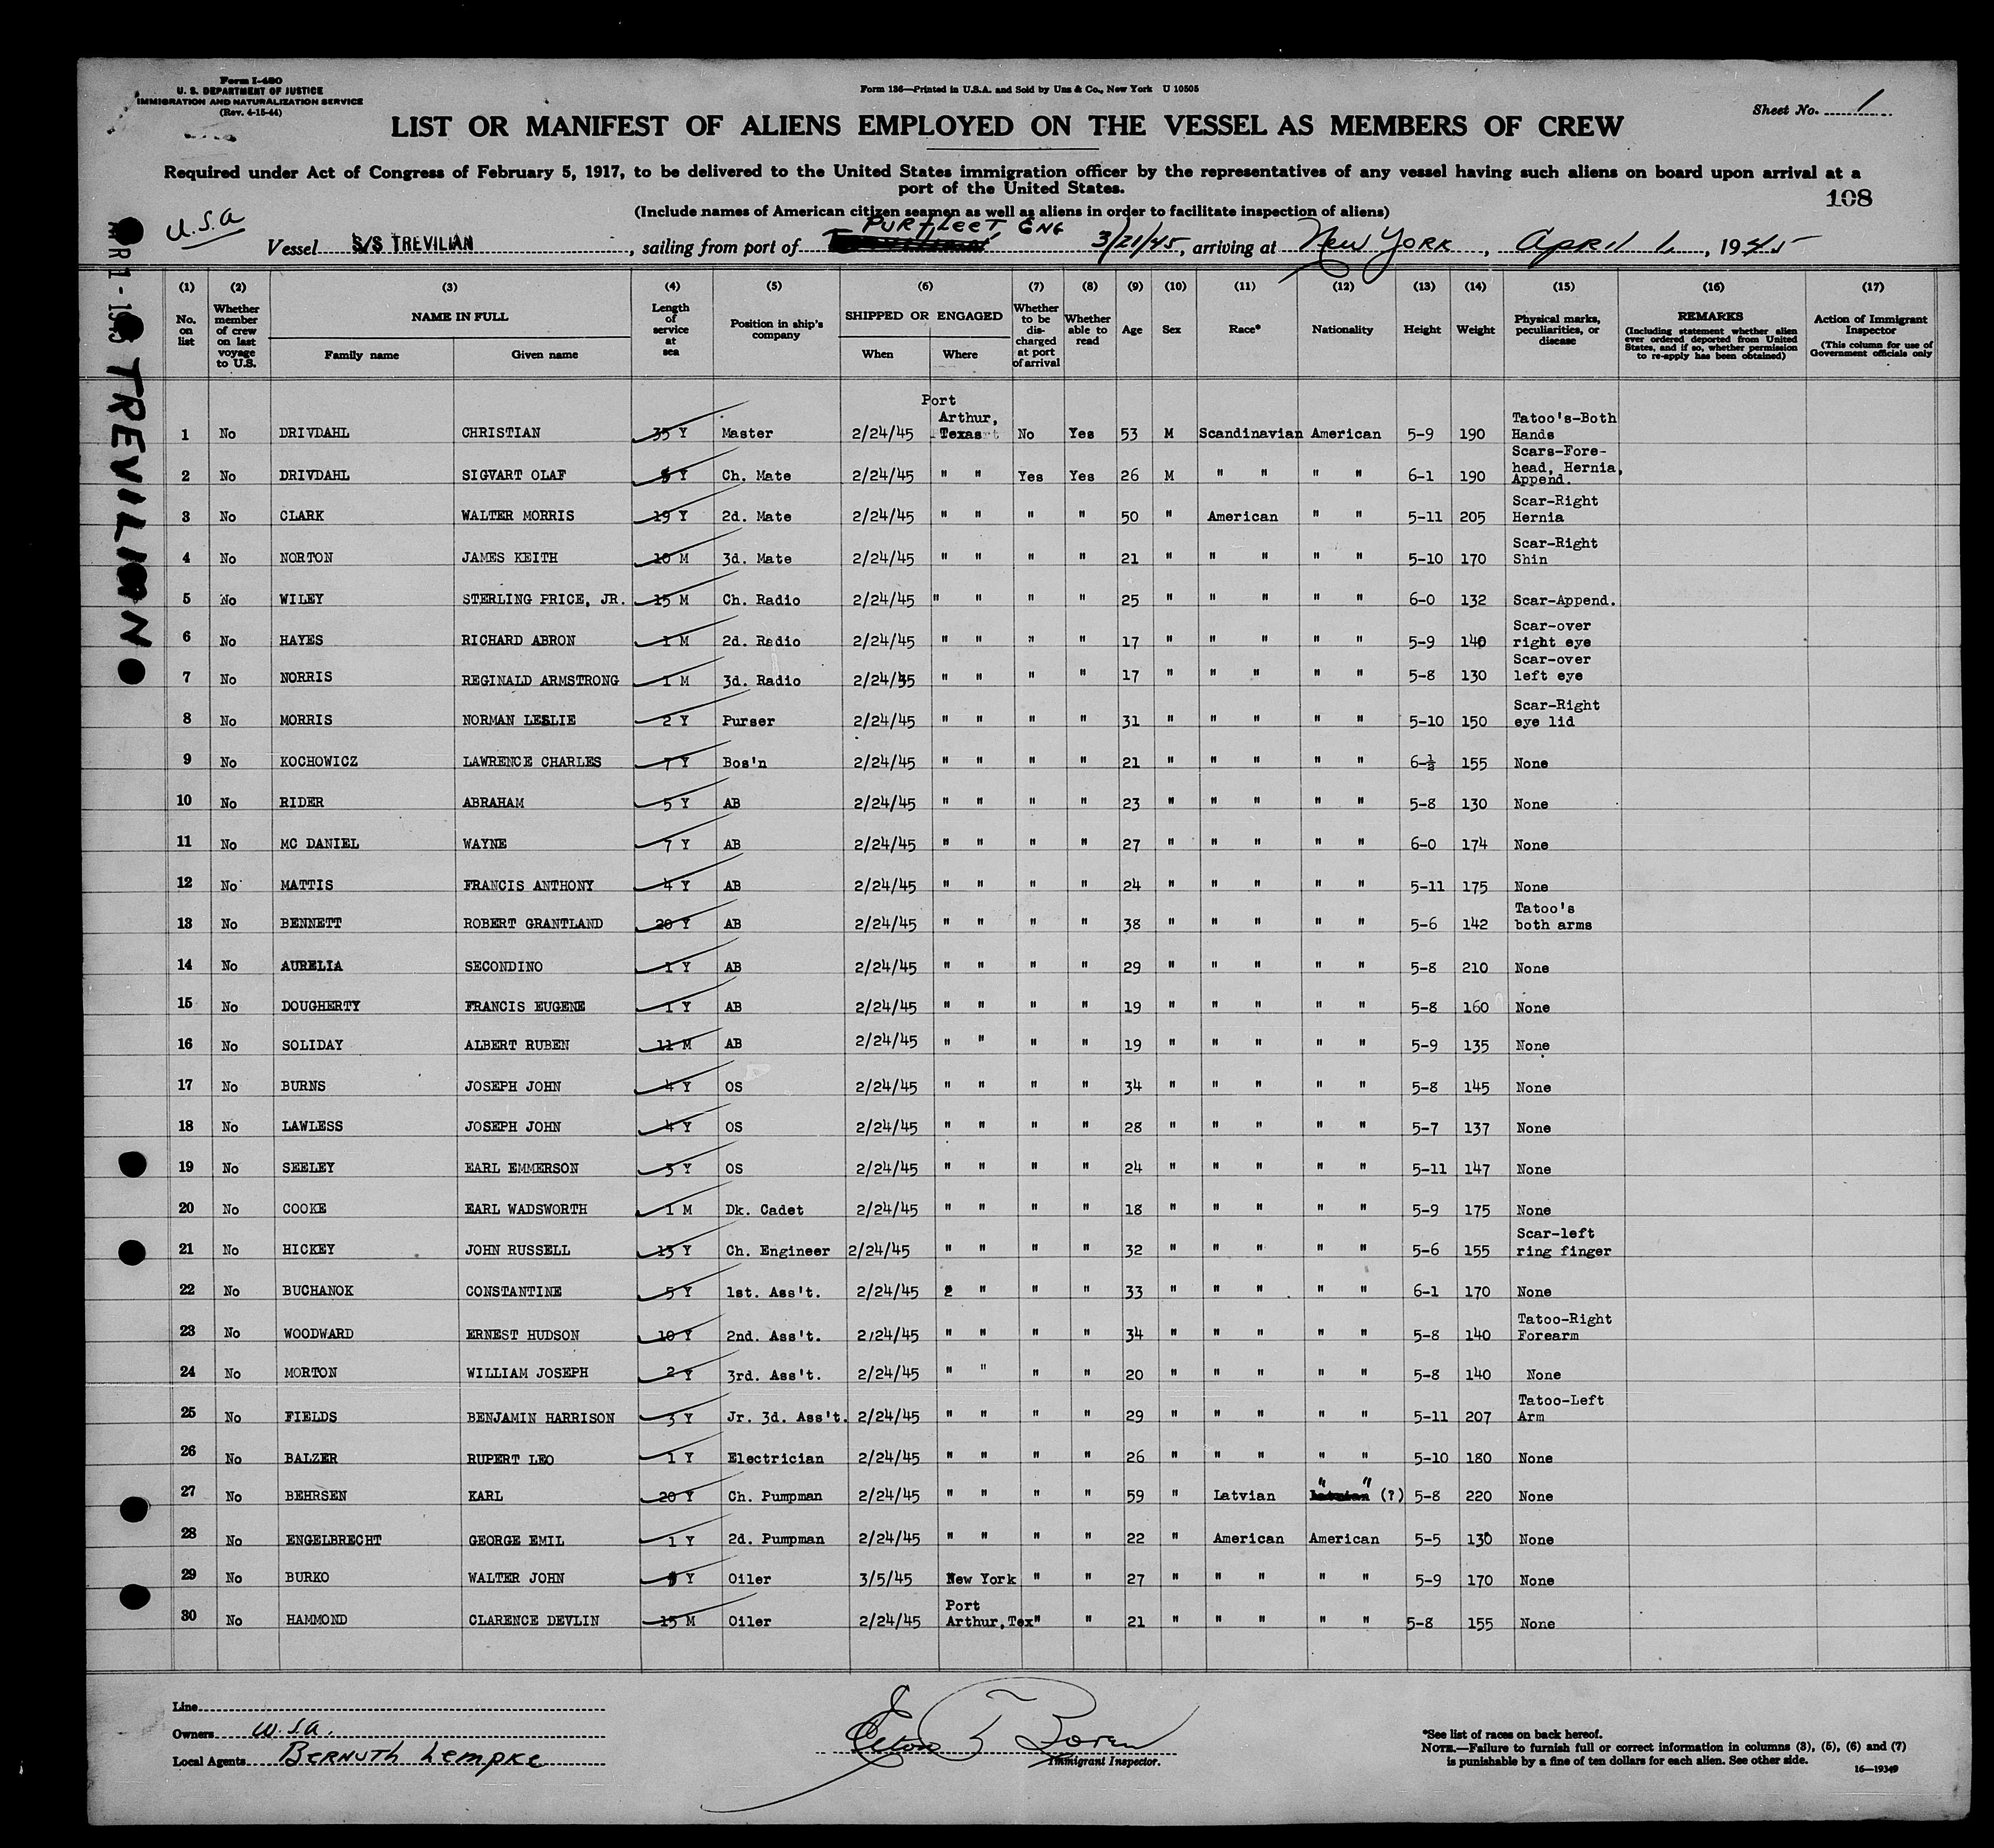 Form I-480
U. S. DEPARTMENT OF JUSTICE
IMMIGRATION AND NATURALIZATION SERVICE
(Rev. 4-15-44)
Form 136—Printed in U.S.A. and Sold by Unz & Co., New York U 10505
Sheet No. 1
LIST OR MANIFEST OF ALIENS EMPLOYED ON THE VESSEL AS MEMBERS OF CREW
Required under Act of Congress of February 5, 1917, to be delivered to the United States immigration officer by the representatives of any vessel having such aliens on board upon arrival at a
port of the United States.
108
(Include names of American citizen seamen as well as aliens in order to facilitate inspection of aliens)
U.S.A
PURFLEET ENG
Vessel S/S TREVILIAN, sailing from port of 3/21/45, arriving at New York, April 1, 1945
TREVILIAN
(1) (2) (3) (4) (5) (6) (7) (8) (9) (10) (11) (12) (13) (14) (15) (16) (17)
No. on list
Whether member of crew on last voyage to U.S.
NAME IN FULL
Family name Given name
Length of service at sea
Position in ship's company
SHIPPED OR ENGAGED
When Where
Whether to be discharged at port of arrival
Whether able to read
Age
Sex
Race*
Nationality
Height
Weight
Physical marks, peculiarities, or disease
REMARKS
(Including statement whether alien ever ordered deported from United States, and if so, whether permission to re-apply has been obtained)
Action of Immigrant Inspector
(This column for use of Government officials only
1 No DRIVDAHL CHRISTIAN 35 Y Master 2/24/45 Port Arthur, Texas No Yes 53 M Scandinavian American 5-9 190 Tatoo's-Both Hands
2 No DRIVDAHL SIGVART OLAF Y Ch. Mate 2/24/45 " " Yes Yes 26 M " " " " 6-1 190 Scars-Fore-head, Hernia, Append.
3 No CLARK WALTER MORRIS 19 Y 2d. Mate 2/24/45 " " " " 50 " American " " 5-11 205 Scar-Right Hernia
4 No NORTON JAMES KEITH 10 M 3d. Mate 2/24/45 " " " " 21 " " " " " 5-10 170 Scar-Right Shin
5 No WILEY STERLING PRICE, JR. 15 M Ch. Radio 2/24/45 " " " " 25 " " " " " 6-0 132 Scar-Append.
6 No HAYES RICHARD ABRON 1 M 2d. Radio 2/24/45 " " " " 17 " " " " " 5-9 140 Scar-over right eye
7 No NORRIS REGINALD ARMSTRONG 1 M 3d. Radio 2/24/45 " " " " 17 " " " " " 5-8 130 Scar-over left eye
8 No MORRIS NORMAN LESLIE 2 Y Purser 2/24/45 " " " " 31 " " " " " 5-10 150 Scar-Right eye lid
9 No KOCHOWICZ LAWRENCE CHARLES 7 Y Bos'n 2/24/45 " " " " 21 " " " " " 6-½ 155 None
10 No RIDER ABRAHAM 5 Y AB 2/24/45 " " " " 23 " " " " " 5-8 130 None
11 No MC DANIEL WAYNE 7 Y AB 2/24/45 " " " " 27 " " " " " 6-0 174 None
12 No MATTIS FRANCIS ANTHONY 4 Y AB 2/24/45 " " " " 24 " " " " " 5-11 175 None
13 No BENNETT ROBERT GRANTLAND 20 Y AB 2/24/45 " " " " 38 " " " " " 5-6 142 Tatoo's both arms
14 No AURELIA SECONDINO 1 Y AB 2/24/45 " " " " 29 " " " " " 5-8 210 None
15 No DOUGHERTY FRANCIS EUGENE 1 Y AB 2/24/45 " " " " 19 " " " " " 5-8 160 None
16 No SOLIDAY ALBERT RUBEN 11 M AB 2/24/45 " " " " 19 " " " " " 5-9 135 None
17 No BURNS JOSEPH JOHN 4 Y OS 2/24/45 " " " " 34 " " " " " 5-8 145 None
18 No LAWLESS JOSEPH JOHN 4 Y OS 2/24/45 " " " " 28 " " " " " 5-7 137 None
19 No SEELEY EARL EMMERSON 3 Y OS 2/24/45 " " " " 24 " " " " " 5-11 147 None
20 No COOKE EARL WADSWORTH 1 M Dk. Cadet 2/24/45 " " " " 18 " " " " " 5-9 175 None
21 No HICKEY JOHN RUSSELL 13 Y Ch. Engineer 2/24/45 " " " " 32 " " " " " 5-6 155 Scar-left ring finger
22 No BUCHANOK CONSTANTINE 5 Y 1st. Ass't. 2/24/45 " " " 33 " " " " " 6-1 170 None
23 No WOODWARD ERNEST HUDSON 10 Y 2nd. Ass't. 2/24/45 " " " " 34 " " " " " 5-8 140 Tatoo-Right Forearm
24 No MORTON WILLIAM JOSEPH 2 Y 3rd. Ass't. 2/24/45 " " " " 20 " " " " " 5-8 140 None
25 No FIELDS BENJAMIN HARRISON 3 Y Jr. 3d. Ass't. 2/24/45 " " " " 29 " " " " " 5-11 207 Tatoo-Left Arm
26 No BALZER RUPERT LEO 1 Y Electrician 2/24/45 " " " " 26 " " " " " 5-10 180 None
27 No BEHRSEN KARL 20 Y Ch. Pumpman 2/24/45 " " " " 59 " Latvian " " (?) 5-8 220 None
28 No ENGELBRECHT GEORGE EMIL 1 Y 2d. Pumpman 2/24/45 " " " " 22 " American American 5-5 130 None
29 No BURKO WALTER JOHN Y Oiler 3/5/45 New York " " 27 " " " " " 5-9 170 None
30 No HAMMOND CLARENCE DEVLIN 15 M Oiler 2/24/45 Port Arthur, Tex " " 21 " " " " " 5-8 155 None
Line
Owners W.S.A.
Local Agents Bernuth Lempke
Immigrant Inspector.
*See list of races on back hereof.
NOTE.—Failure to furnish full or correct information in columns (3), (5), (6) and (7)
is punishable by a fine of ten dollars for each alien. See other side.
16—19349